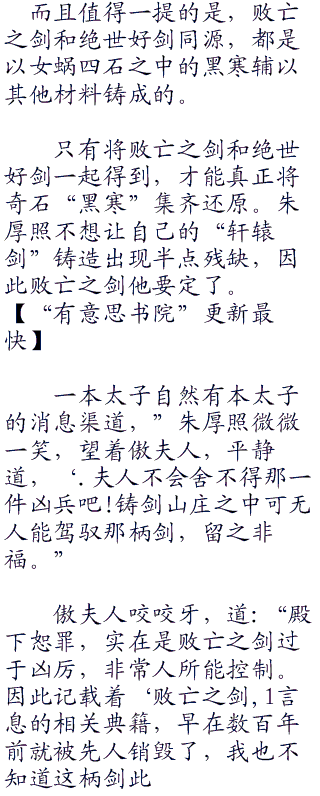 而且值得一提的是，败亡
之剑和绝世好剑同源，都是
以女娲四石之中的黑寒辅以
其他材料铸成的。
只有将败亡之剑和绝世
好剑一起得到，才能真正将
奇石“黑寒”集齐还原。朱
厚照不想让自己的“轩辕
剑”铸造出现半点残缺，因
此败亡之剑他要定了。
【“有意思书院”更新最
快】
一本太子自然有本太子
的消息渠道，”朱厚照微微
一笑，望着傲夫人，平静
道，‘.夫人不会舍不得那一
件凶兵吧!铸剑山庄之中可无
人能驾驭那柄剑，留之非
福。”
傲夫人咬咬牙，道:“殿
下恕罪，实在是败亡之剑过
于凶厉，非常人所能控制。
因此记载着‘败亡之剑,1言
息的相关典籍，早在数百年
前就被先人销毁了，我也不
知道这柄剑此